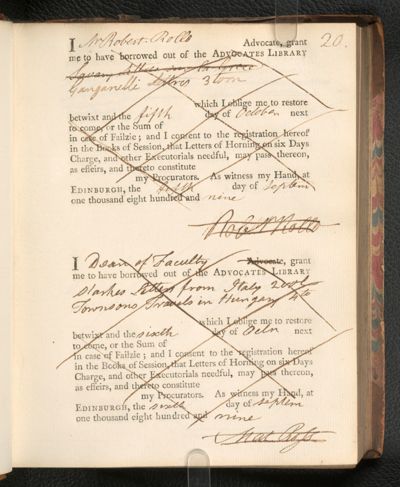 20.
I Mr Robert Rollo Advocate, grant
me to have borrowed out of the ADVOCATES LIBRARY
Ganganelli Letters 3 tom
which I oblige me to restore
betwixt and the fifth day of October next
to come, or the Sum of
in case of Failzie; and I consent to the registration hereof
in the Books of Session, that Letters of Horning on six Days
Charge, and other Executorials needful, may pass thereon,
as effeirs, and thereto constitute
my Procurators. As witness my Hand, at
EDINBURGH, the fifth day of Septem
one thousand eight hundred and nine
Robt Rollo
I Dean of Faculty Advocate, grant
me to have borrowed out of the ADVOCATES LIBRARY
Starkes Letters from Italy 2 vol
Townsons Travels in Hungary 4to
which I oblige me to restore
betwixt and the sixth day of Octr next
to come, or the Sum of
in case of Failzie; and I consent to the registration hereof
in the Books of Session, that Letters of Horning on six Days
Charge, and other Executorials needful, may pass thereon,
as effeirs, and thereto constitute
my Procurators. As witness my Hand, at
EDINBURGH, the sixth day of Septem
one thousand eight hundred and nine
Mat Ross